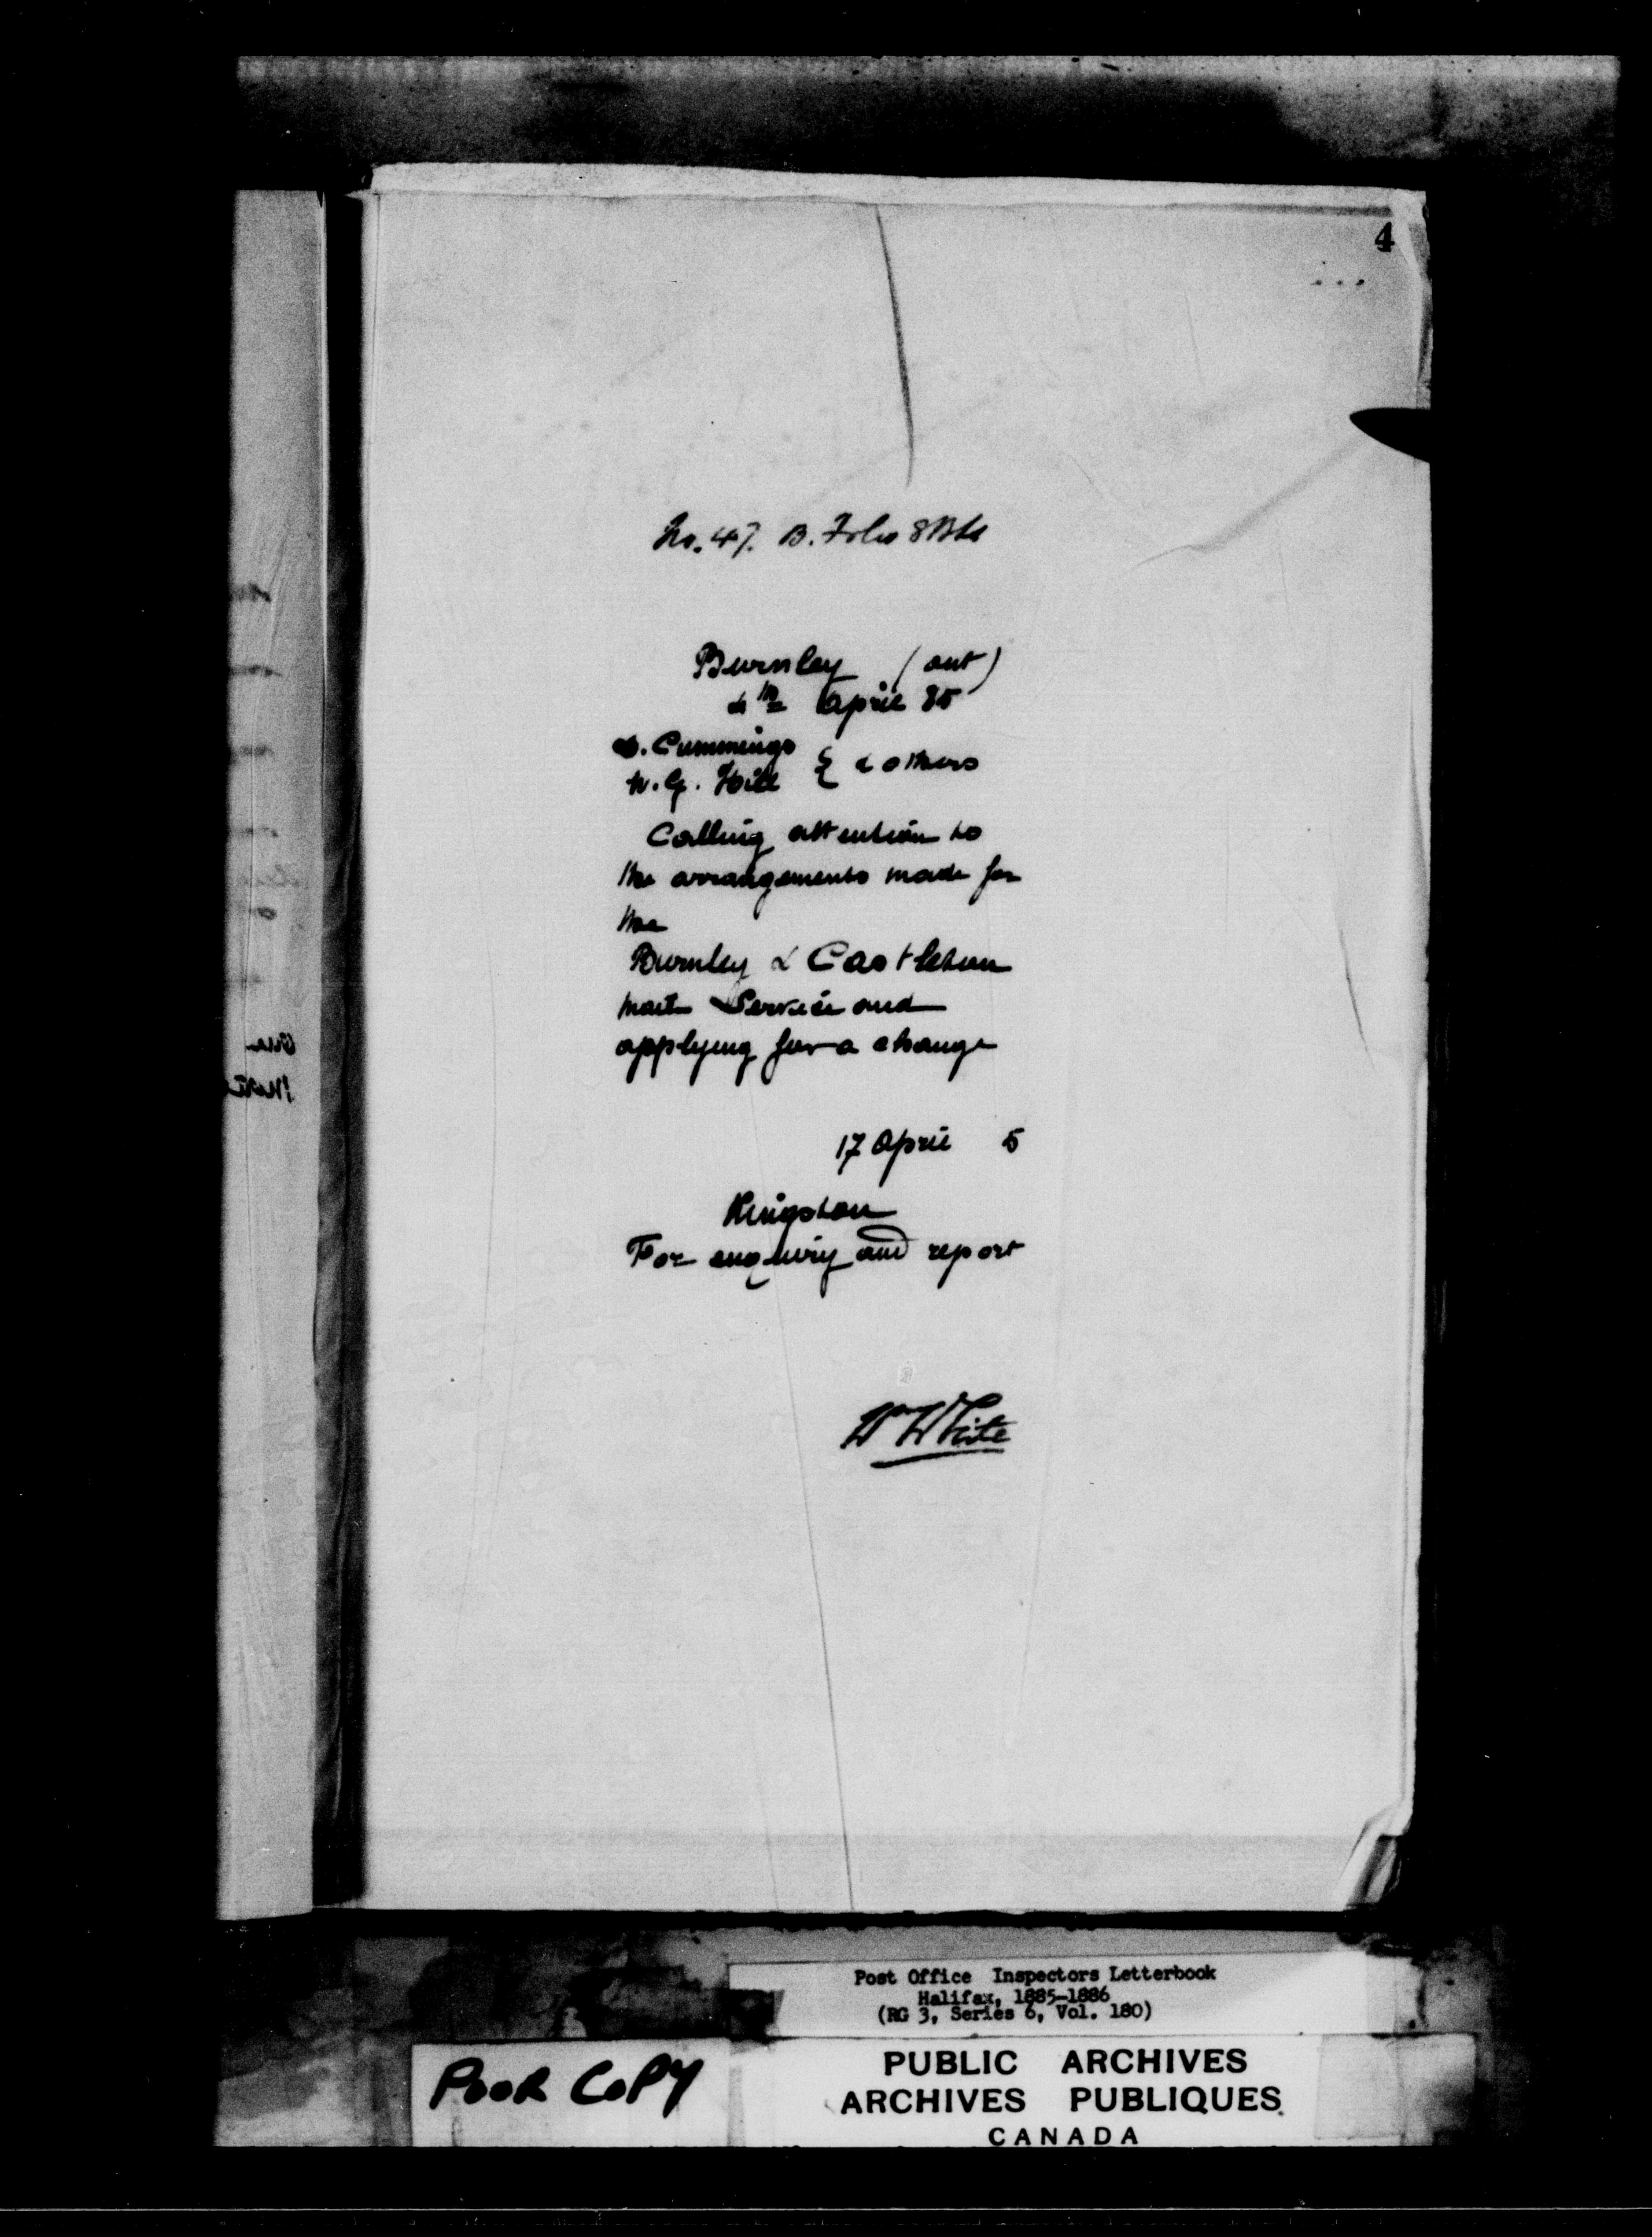 4
No. 47. B. Folio
Burnley (Ont)
4th April 85
Cummings
W. G. Hill } & others
Calling attention to
the arrangements made for
the
Burnley & Castleton
Mail Service and
applying for a change
17 April 5
Kingston
For enquiry and report
W White
Post Office Inspectors Letterbook
Halifax, 1885-1886
(RG 3, Series 6, Vol. 180)
POOR COPY
PUBLIC ARCHIVES
ARCHIVES PUBLIQUES
CANADA